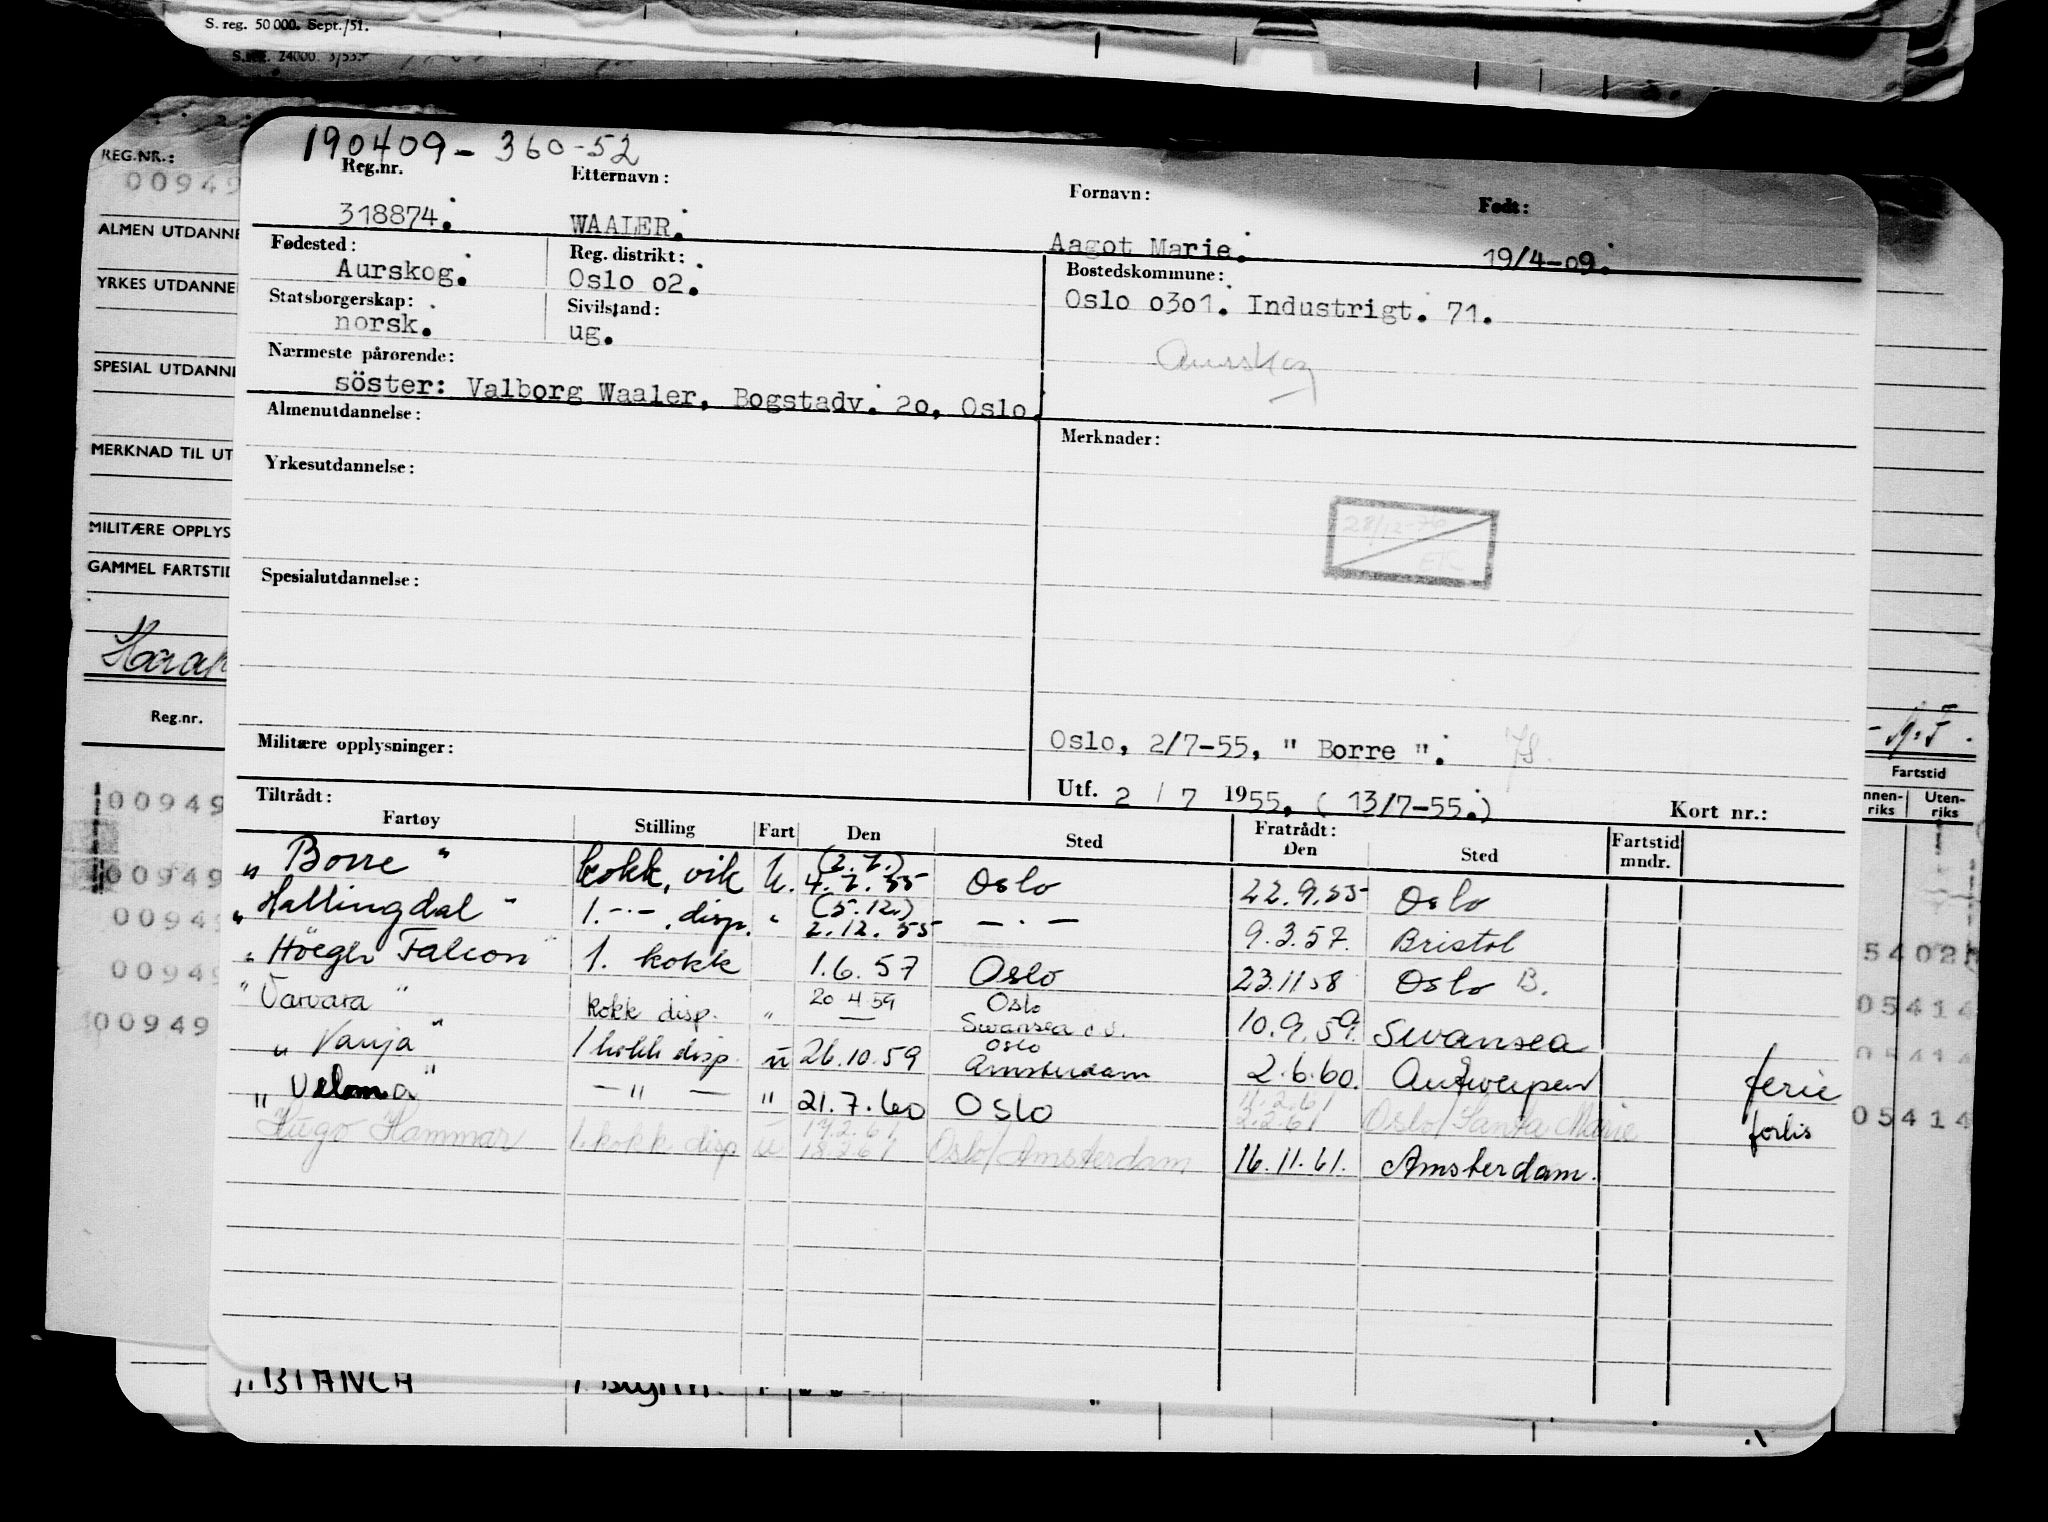 S. reg. 50 000. Sept./51.
S. reg. 24000. 3/53.
REG.NR.:
00949
ALMEN UTDANNE
YRKES UTDANNE
SPESIAL UTDANNE
MERKNAD TIL UT
MILITÆRE OPPLYS
GAMMEL FARTSTID
Reg.nr.
00949
00949
00949
00949
00949
190409 - 360-52
Reg.nr. Etternavn: Fornavn: Født:
318874. WAALER. Aagot Marie. 19/4-09.
Fødested: Reg. distrikt: Bostedskommune:
Aurskog. Oslo 02. Oslo 0301. Industrigt. 71.
Statsborgerskap: Sivilstand:
norsk. ug.
Aurskog
Nærmeste pårørende:
söster: Valborg Waaler, Bogstadv. 20, Oslo.
Almenutdannelse: Merknader:
Yrkesutdannelse:
28/12-76
Spesialutdannelse:
Militære opplysninger: Oslo, 2/7-55, " Borre ".
Utf. 2 / 7 1955, ( 13/7-55.)
Tiltrådt: Kort nr.:
Fartøy Stilling Fart Den Sted Fratrådt: Den Sted Fartstid mndr.
(2.7.)
" Borre " kokk, vik U. 4.7.55 Oslo 22.9.55 Oslo
(5.12.)
" Hallingdal " 1. -"-, disp. " 2.12.55 - " - 9.3.57. Bristol
" Höegh Falcon " 1. kokk 1.6.57 Oslo 23.11.58 Oslo B.
" Varvara " kokk disp. " 20 4 59 Oslo
Swansea 10.9.59. Swansea
" Vanja " 1 kokk disp. u 26.10.59 Oslo
Amsterdam 2.6.60. Antwerpen ferie
" Velma " - " - " 21.7.60 Oslo 11.2.61
2.2.61 Oslo/Santa Marie forlis
Hugo Hammar 1. kokk disp u 17.2.61
18.2.61 Oslo/Amsterdam 16.11.61. Amsterdam.
Fartstid
nnen-riks Uten-riks
5402
05414
05414
05414